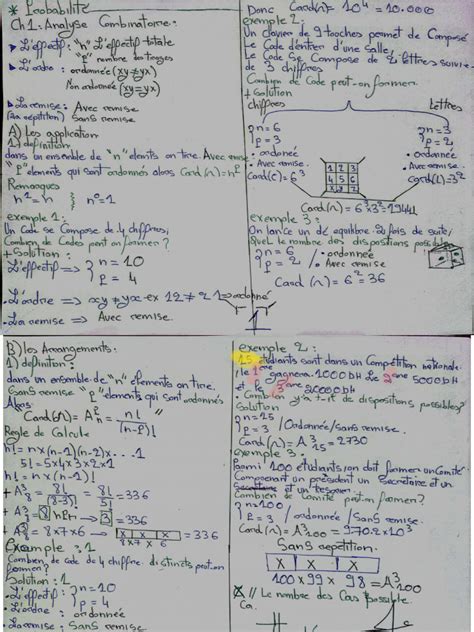 * Probabilité
Ch1: Analyse Combinatoire:
• L'effectif: "n" L'effectif totale
"p" nombre de tirages
• L'ordre: ordonnée (xy≠yx)
Non ordonnée (xy=yx)
• La remise: Avec remise
(la repetition) Sans remise
A) Les application
1) definition:
dans un ensemble de "n" elements on tire. Avec remise
"P" elements qui sont ordonnés alors Card(Ω)=n^p
Remarques
n^1 = n } n^0=1
exemple 1:
Un Code se Compose de 4 chiffres,
Combien de Codes peut on former?
+ Solution:
• L'effectif ⟹ { n = 10
p = 4
• L'ordre ⟹ xy≠yx ex 12≠21 ⟹ ordonné
• La remise ⟹ Avec remise.
Donc Card(Ω)= 10^4 = 10.000
exemple 2:
Un clavier de 9 touches permet de Composé
Le Code d'entrer d'une Salle,
Le Code Se Compose de 2 lettres suivie
de 3 chiffres
Combien de Code peut-on former.
+ Solution
chiffres lettres
{ n = 6 { n = 3
p = 3 p = 2
• ordonée • ordonnée
• Avec remise. • Avec remise
1 2 3
4 5 6
Card(C) = 6^3 Card(L)=3^2
Card(Ω)= 6^3 x 3^2 = 1944
exemple 3:
On lance un dé equilibre 2 fois de suite,
Quel le nombre des dispositions possibles
{ n = 6 / • ordonnée
p = 2 / • Avec remise
Card(Ω) = 6^2 = 36
1
B) les Arrangements:
1) definition:
dans un ensemble de "n" elements on tire.
Sans remise "P" elements qui sont ordonnés
Alors
Card(Ω) = A^p_n = n! / (n-p)!
Regle de Calcule
n! = n x (n-1)(n-2) x ... 1
5! = 5x4x3x2x1
+ A^3_8 = 8! / (8-3)! = 8! / 5! = 336
+ A^3_8 = 8 nPr → 3 = 336
+ A^3_8 = 8x7x6 → x x x = 336
8 x 7 x 6
Exemple : 1
Combien de code de 4 chiffre distincts peut on
former?
Solution:
• L'effectif: { n = 10
p = 4
• L'ordre: ordonnée
• La remise: Sans remise
exemple 2:
15 étudiants sont dans un Compétition nationale
le 1ère gagnera 10000DH Le 2ème 5000DH
et le 3ème 2000DH
• Combien y'a-t-il de dispositions possibles?
Solution
{ n = 15
p = 3 / Ordonnée/sans remise.
Card(Ω) = A^3_15 = 2730
exemple 3:
Parmi 100 étudiants, on doit former un Comité
Comprenant un président un Secretaire et un
et un tresorier
Combien de Comité peut-on former?
{ n = 100
p = 3 / ordonnée / Sans remise.
Card(Ω) = A^3_100 = 970.2x10^3
Sans repetition.
x x x
100 x 99 x 98 = A^3_100
// Le nombre des Cas possible
Ca.